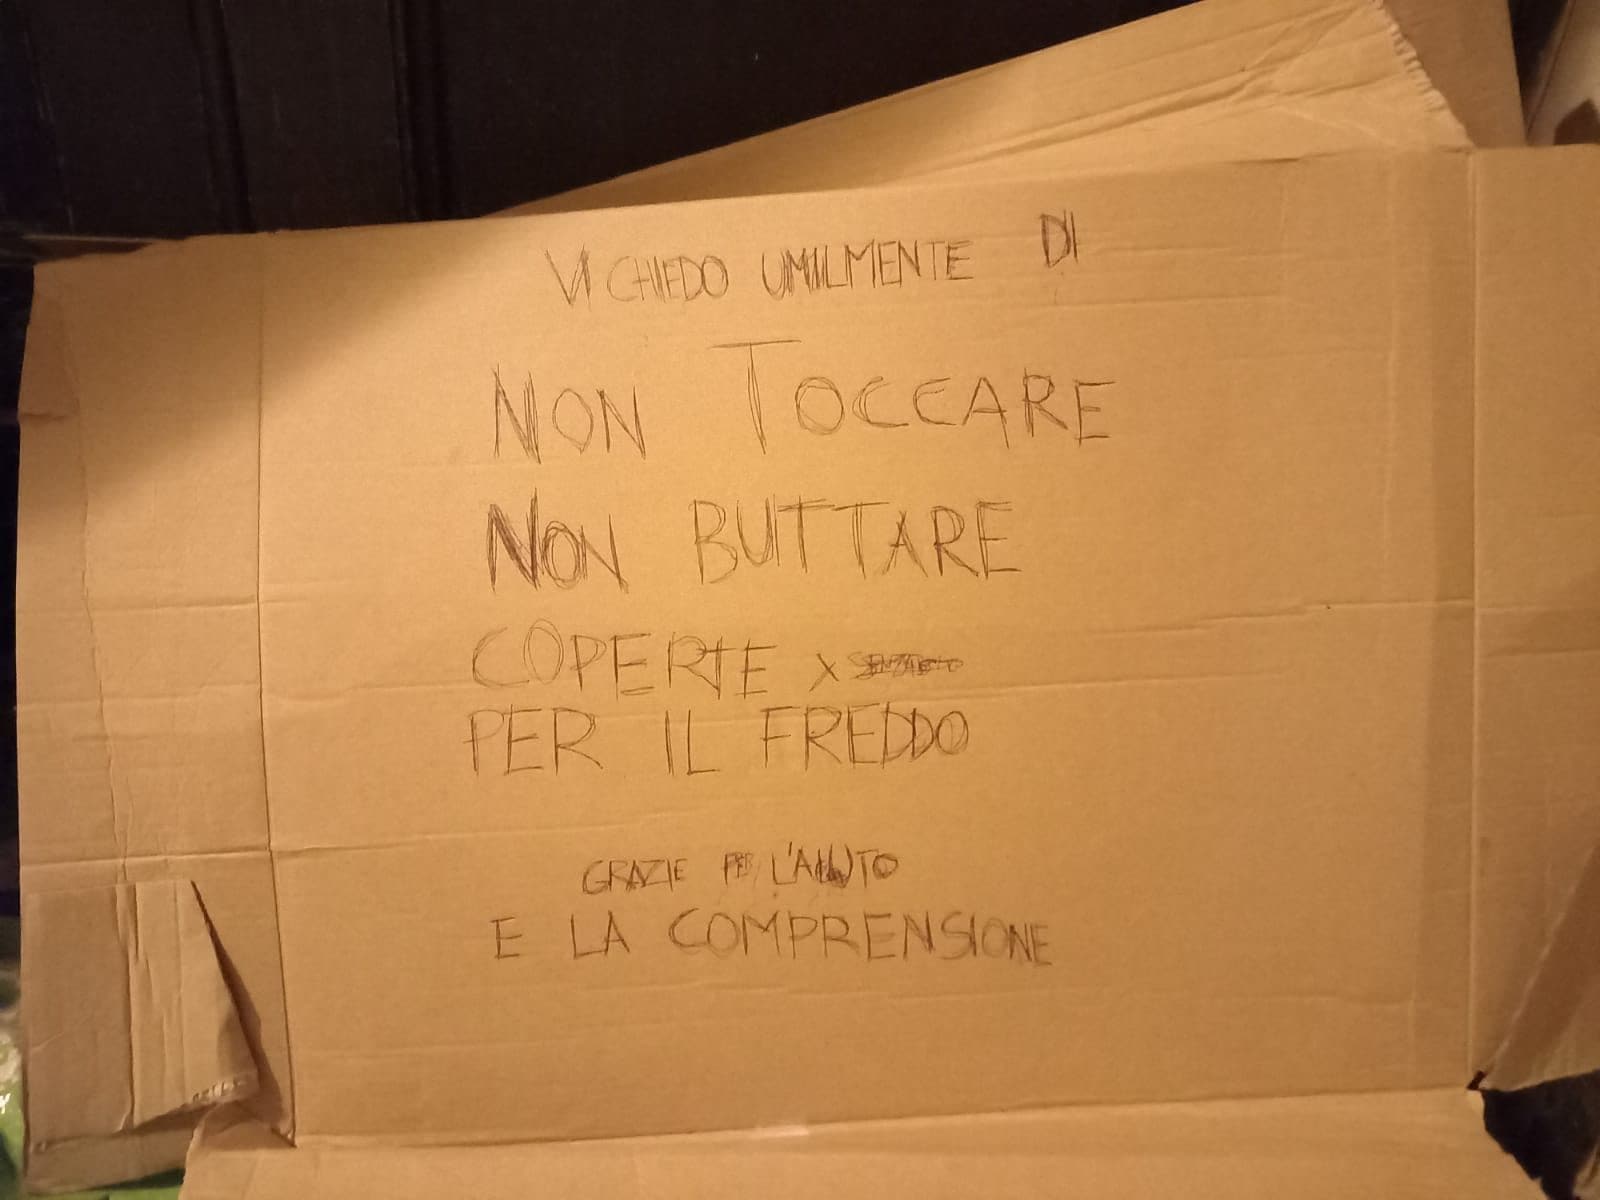 VI CHIEDO UMILMENTE DI
NON TOCCARE
NON BUTTARE
COPERTE X
PER IL FREDDO
GRAZIE PER L'AIUTO
E LA COMPRENSIONE